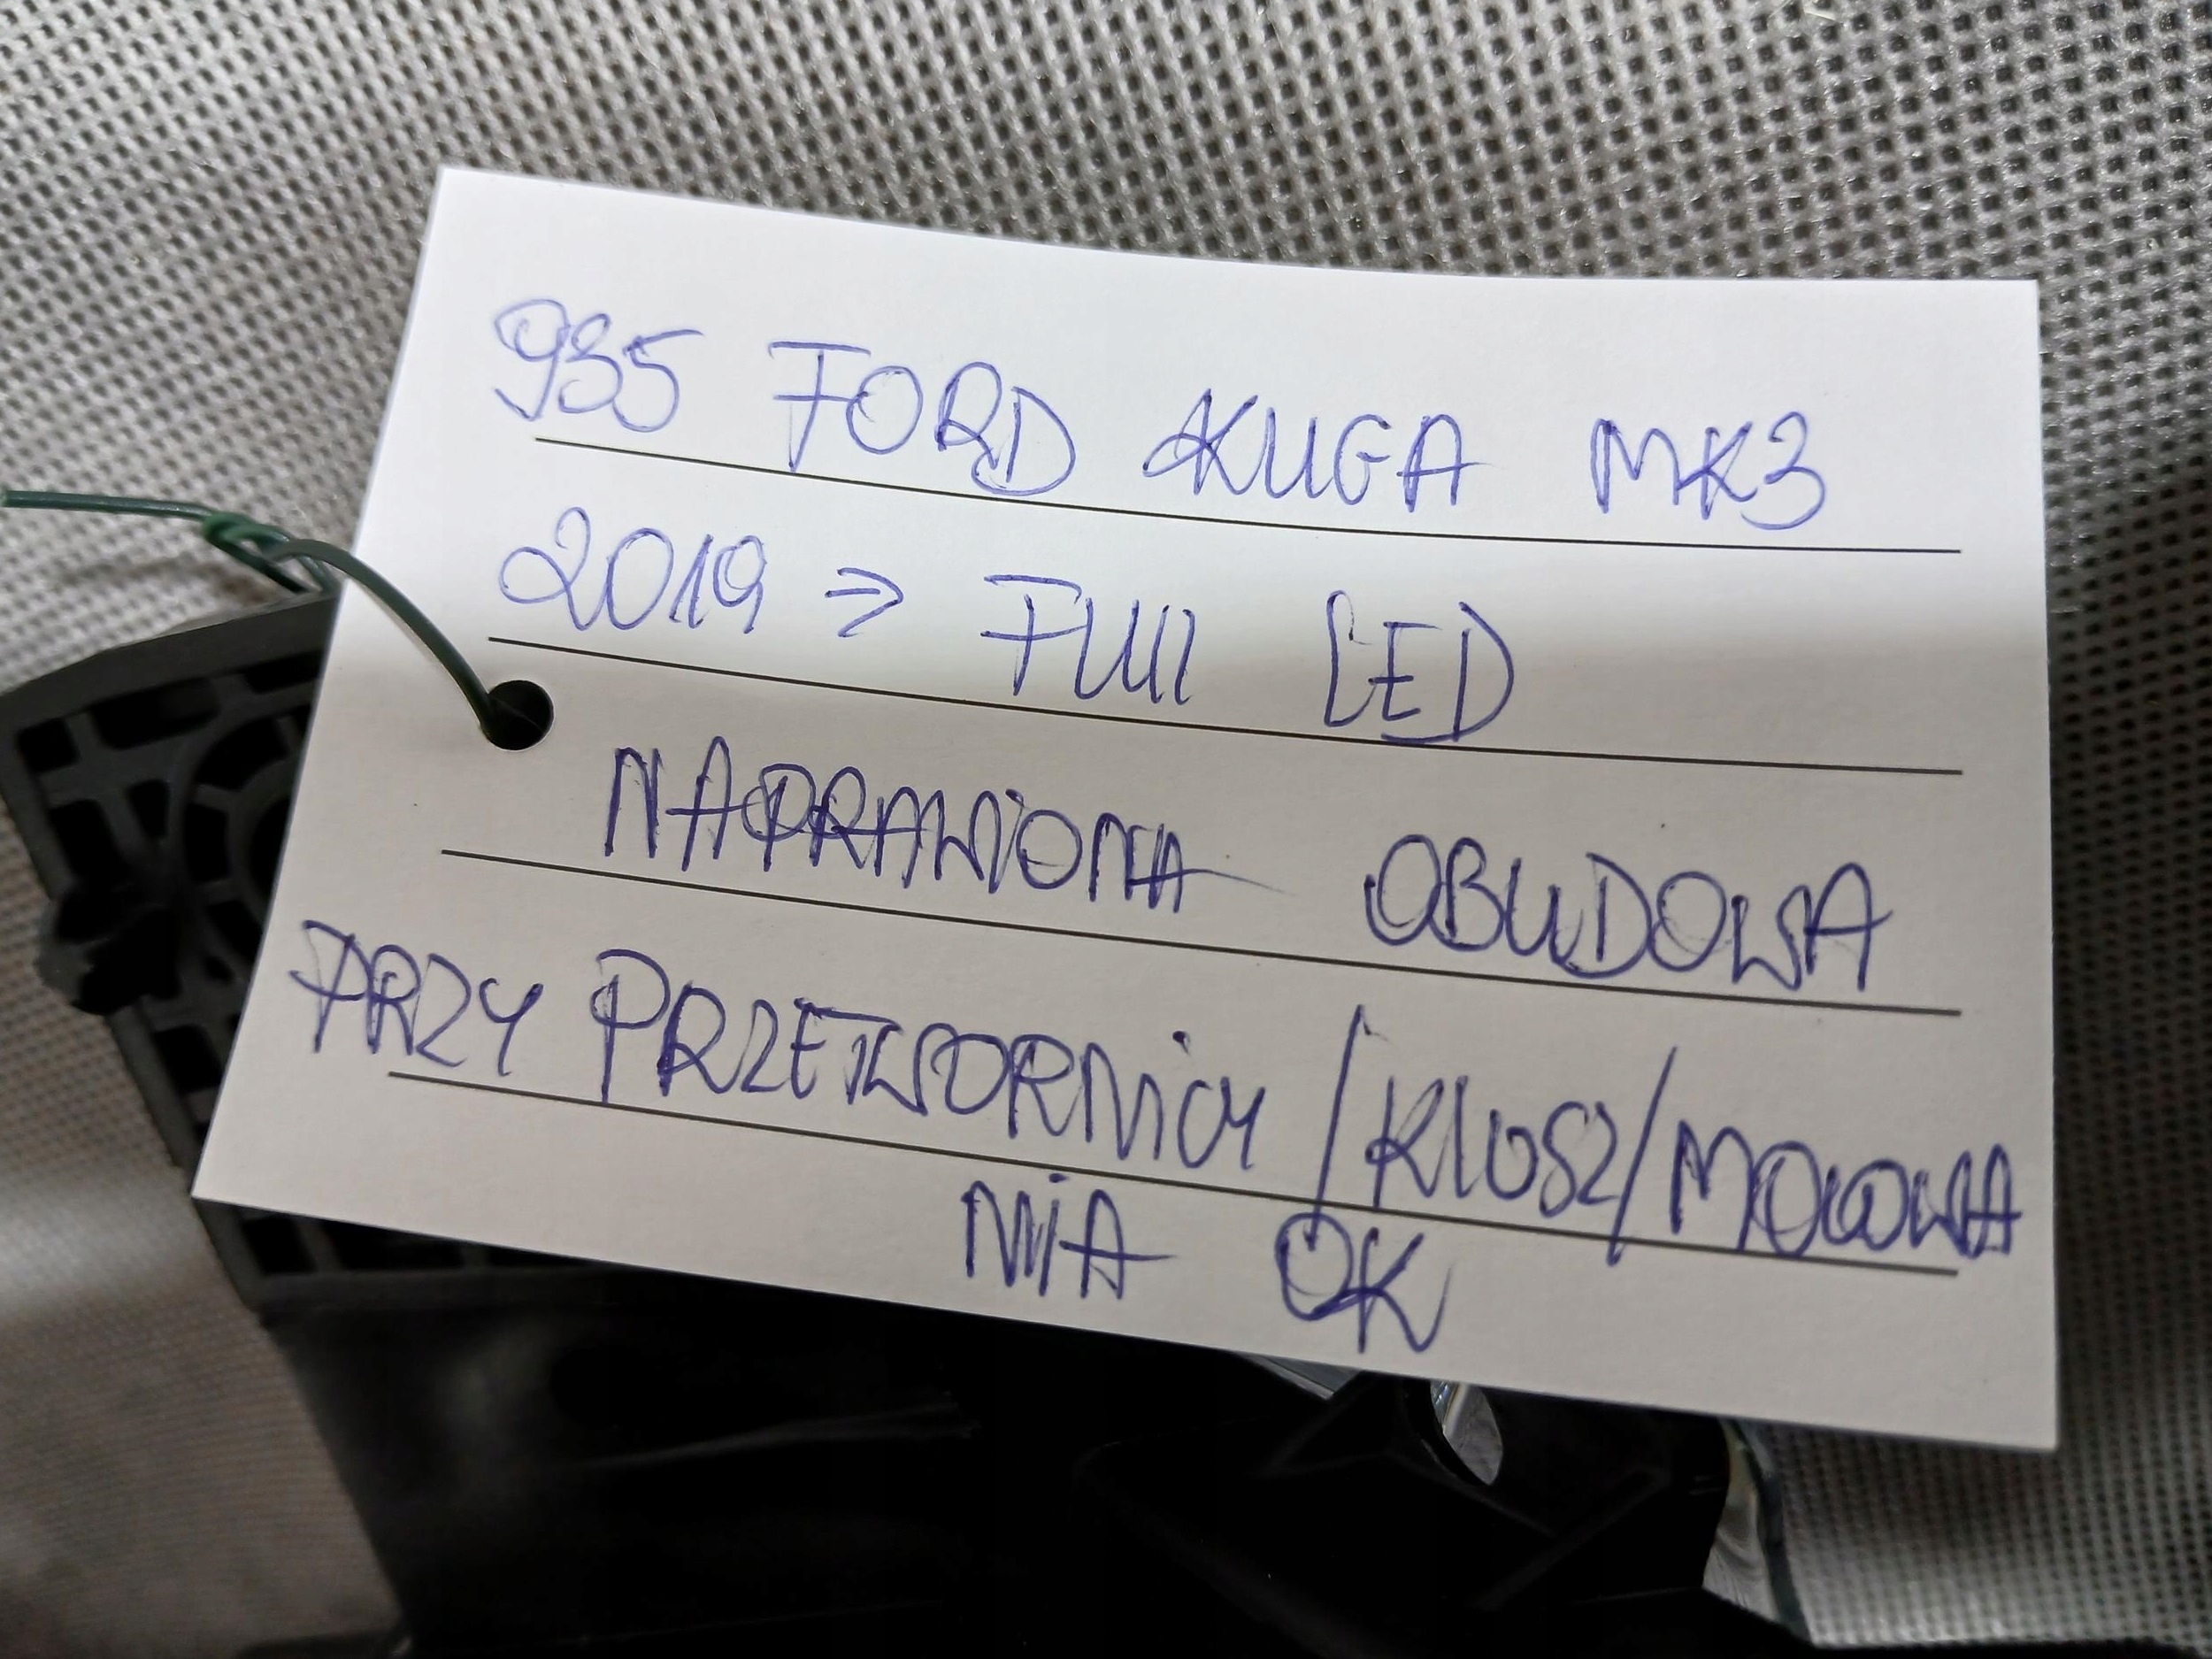 935 FORD KUGA MK3
2019 => FUll LED
NAPRAWIONA OBUDOWA
PRZY PRZETWORNICY / KlOSZ / MOCOWA
NIA OK